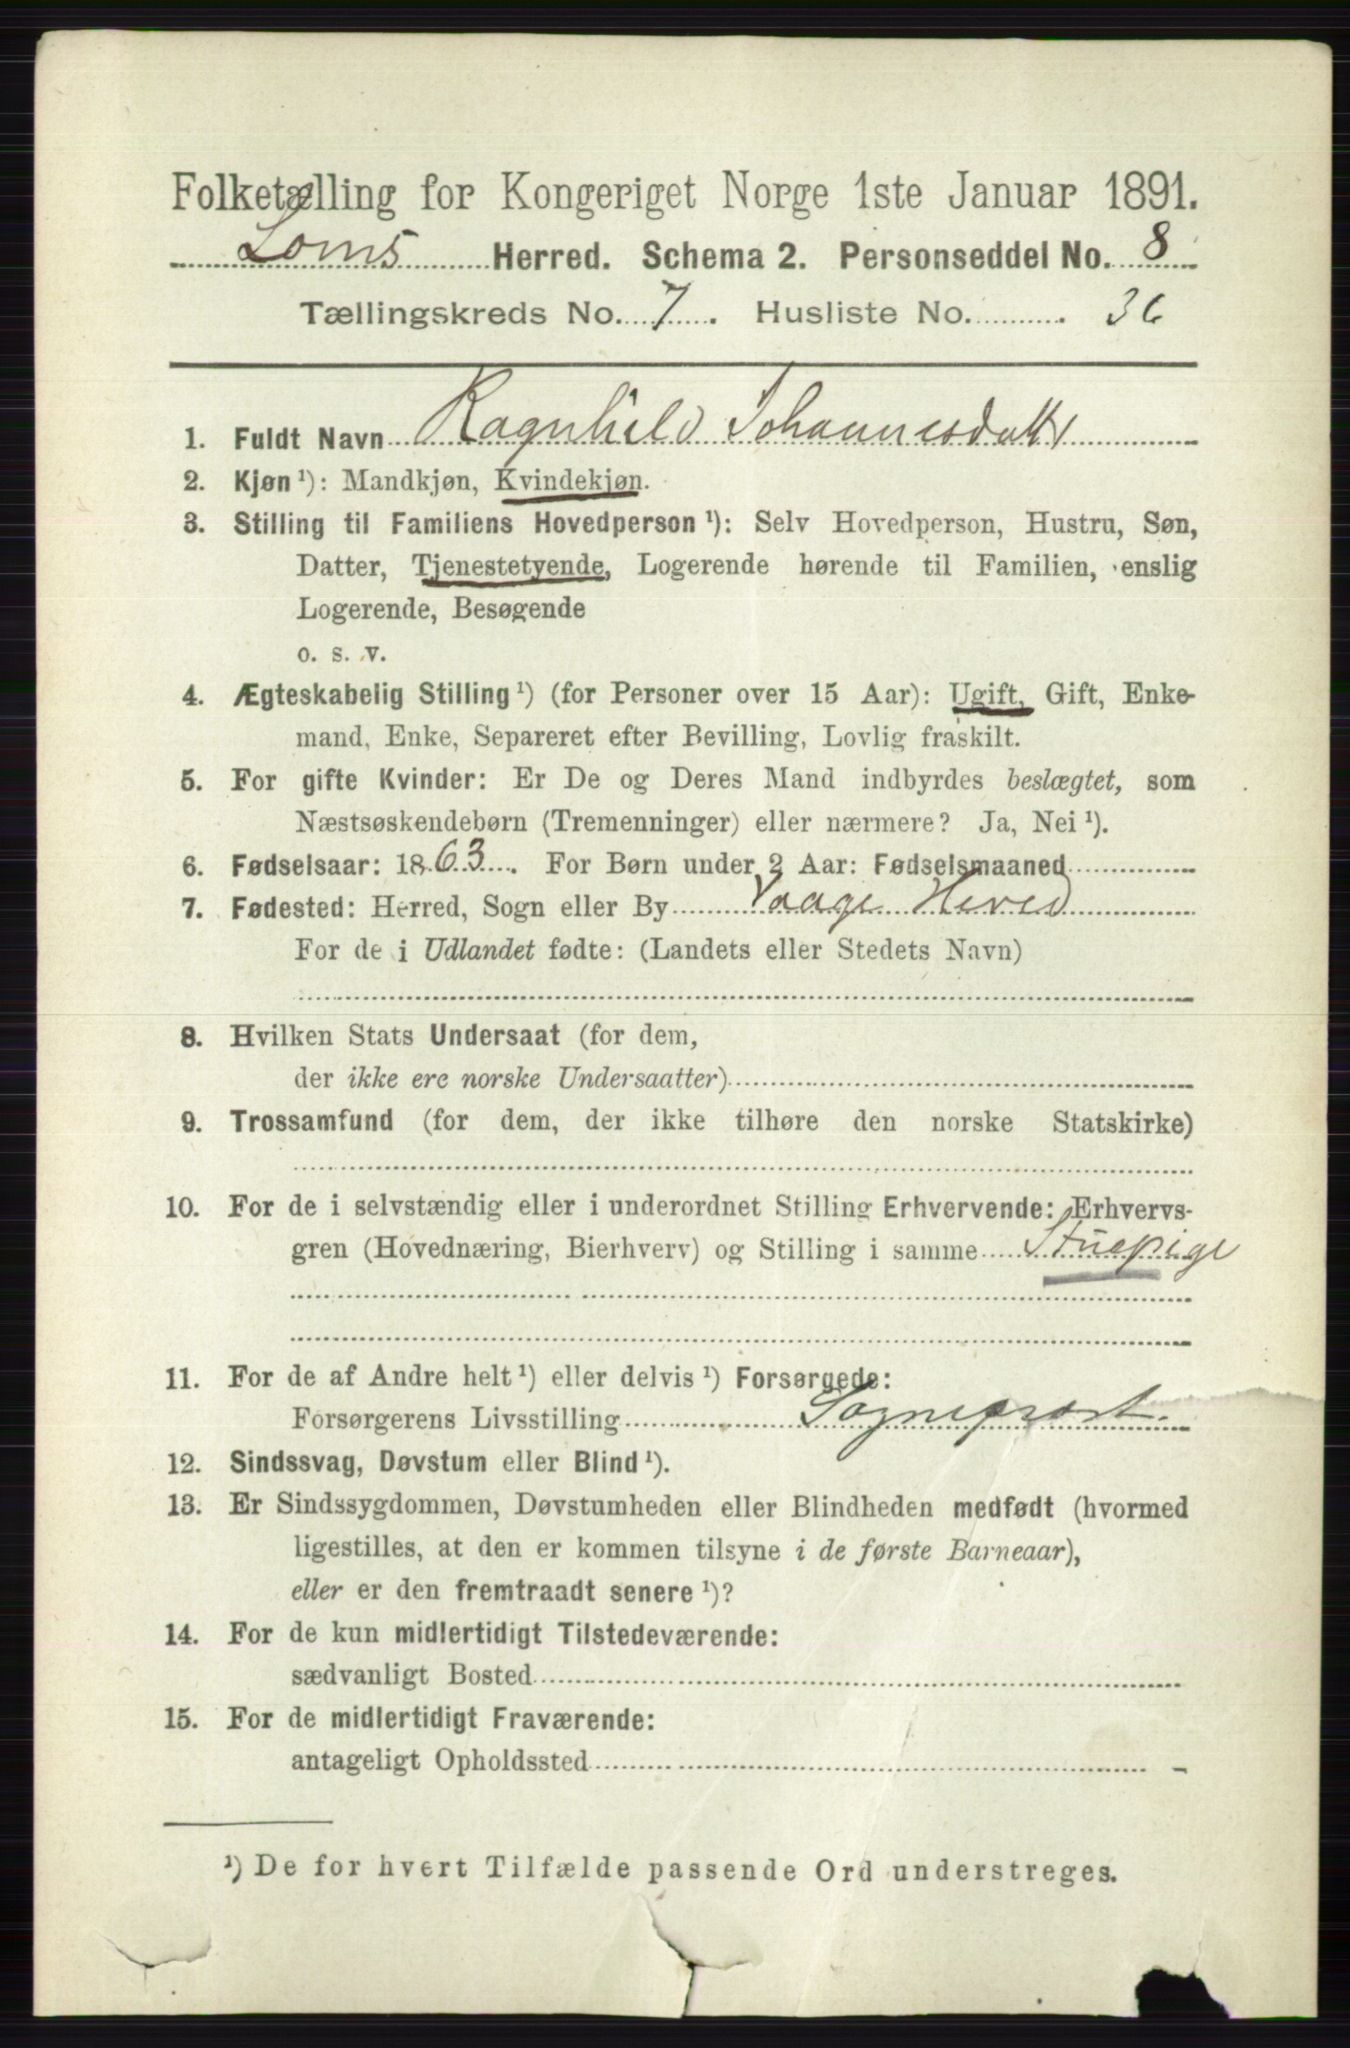 Folketælling for Kongeriget Norge 1ste Januar 1891.
Loms Herred. Schema 2. Personseddel No. 8
Tællingskreds No. 7. Husliste No. 36
1. Fuldt Navn Ragnhild Johannesdatt
2. Kjøn ¹): Mandkjøn, Kvindekjøn.
3. Stilling til Familiens Hovedperson ¹): Selv Hovedperson, Hustru, Søn,
Datter, Tjenestetyende, Logerende hørende til Familien, enslig
Logerende, Besøgende
o. s. v.
4. Ægteskabelig Stilling ¹) (for Personer over 15 Aar): Ugift, Gift, Enke-
mand, Enke, Separeret efter Bevilling, Lovlig fraskilt.
5. For gifte Kvinder: Er De og Deres Mand indbyrdes beslægtet, som
Næstsøskendebørn (Tremenninger) eller nærmere? Ja, Nei ¹).
6. Fødselsaar: 1863. For Børn under 2 Aar: Fødselsmaaned
7. Fødested: Herred, Sogn eller By Vaage Herred
For de i Udlandet fødte: (Landets eller Stedets Navn)
8. Hvilken Stats Undersaat (for dem,
der ikke ere norske Undersaatter)
9. Trossamfund (for dem, der ikke tilhøre den norske Statskirke)
10. For de i selvstændig eller i underordnet Stilling Erhvervende: Erhvervs-
gren (Hovednæring, Bierhverv) og Stilling i samme Stuepige
11. For de af Andre helt ¹) eller delvis ¹) Forsørgede:
Forsørgerens Livsstilling Sognepræst.
12. Sindssvag, Døvstum eller Blind ¹).
13. Er Sindssygdommen, Døvstumheden eller Blindheden medfødt (hvormed
ligestilles, at den er kommen tilsyne i de første Barneaar),
eller er den fremtraadt senere ¹)?
14. For de kun midlertidigt Tilstedeværende:
sædvanligt Bosted
15. For de midlertidigt Fraværende:
antageligt Opholdssted
¹) De for hvert Tilfælde passende Ord understreges.